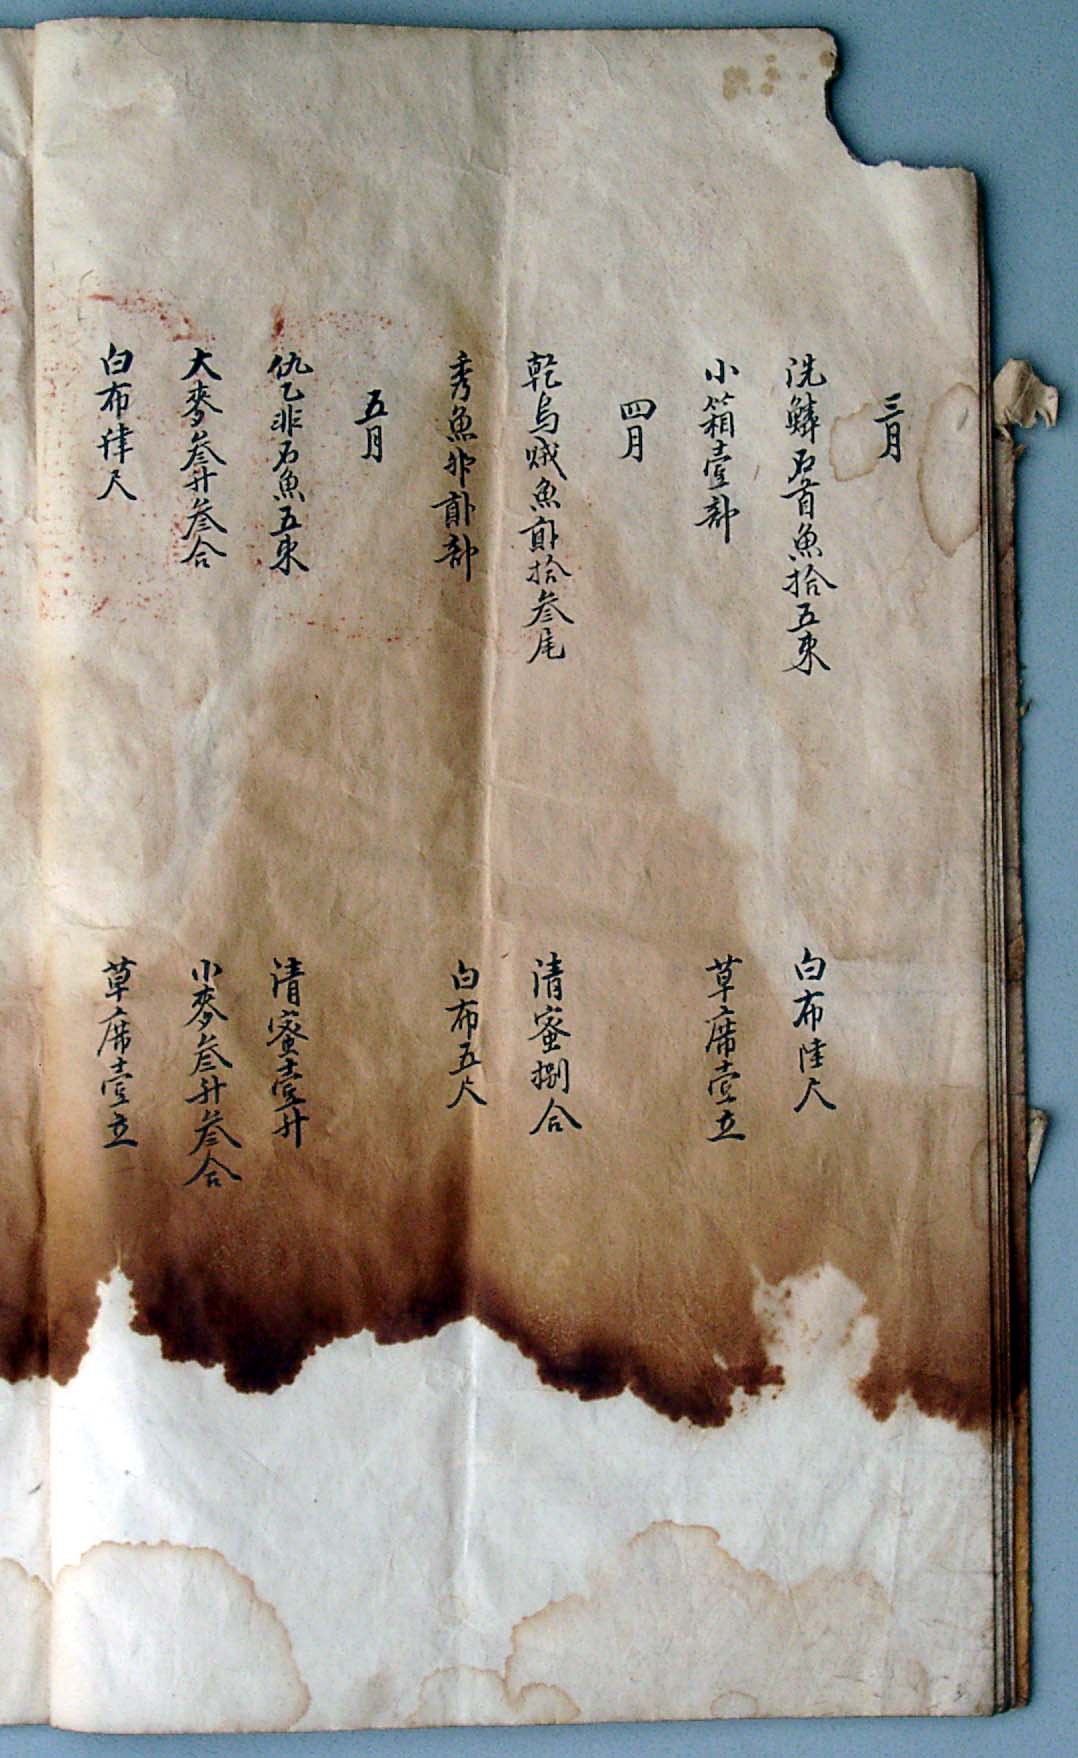 三月
洗鱗石首魚拾五束 白布陸尺
小箱壹部 草席壹立
四月
乾烏賊魚貳拾叁尾 清蜜捌合
秀魚卵貳部 白布五尺
五月
仇乙非石魚五束 清蜜壹升
大麥叁升叁合 小麥叁升叁合
白布肆尺 草席壹立